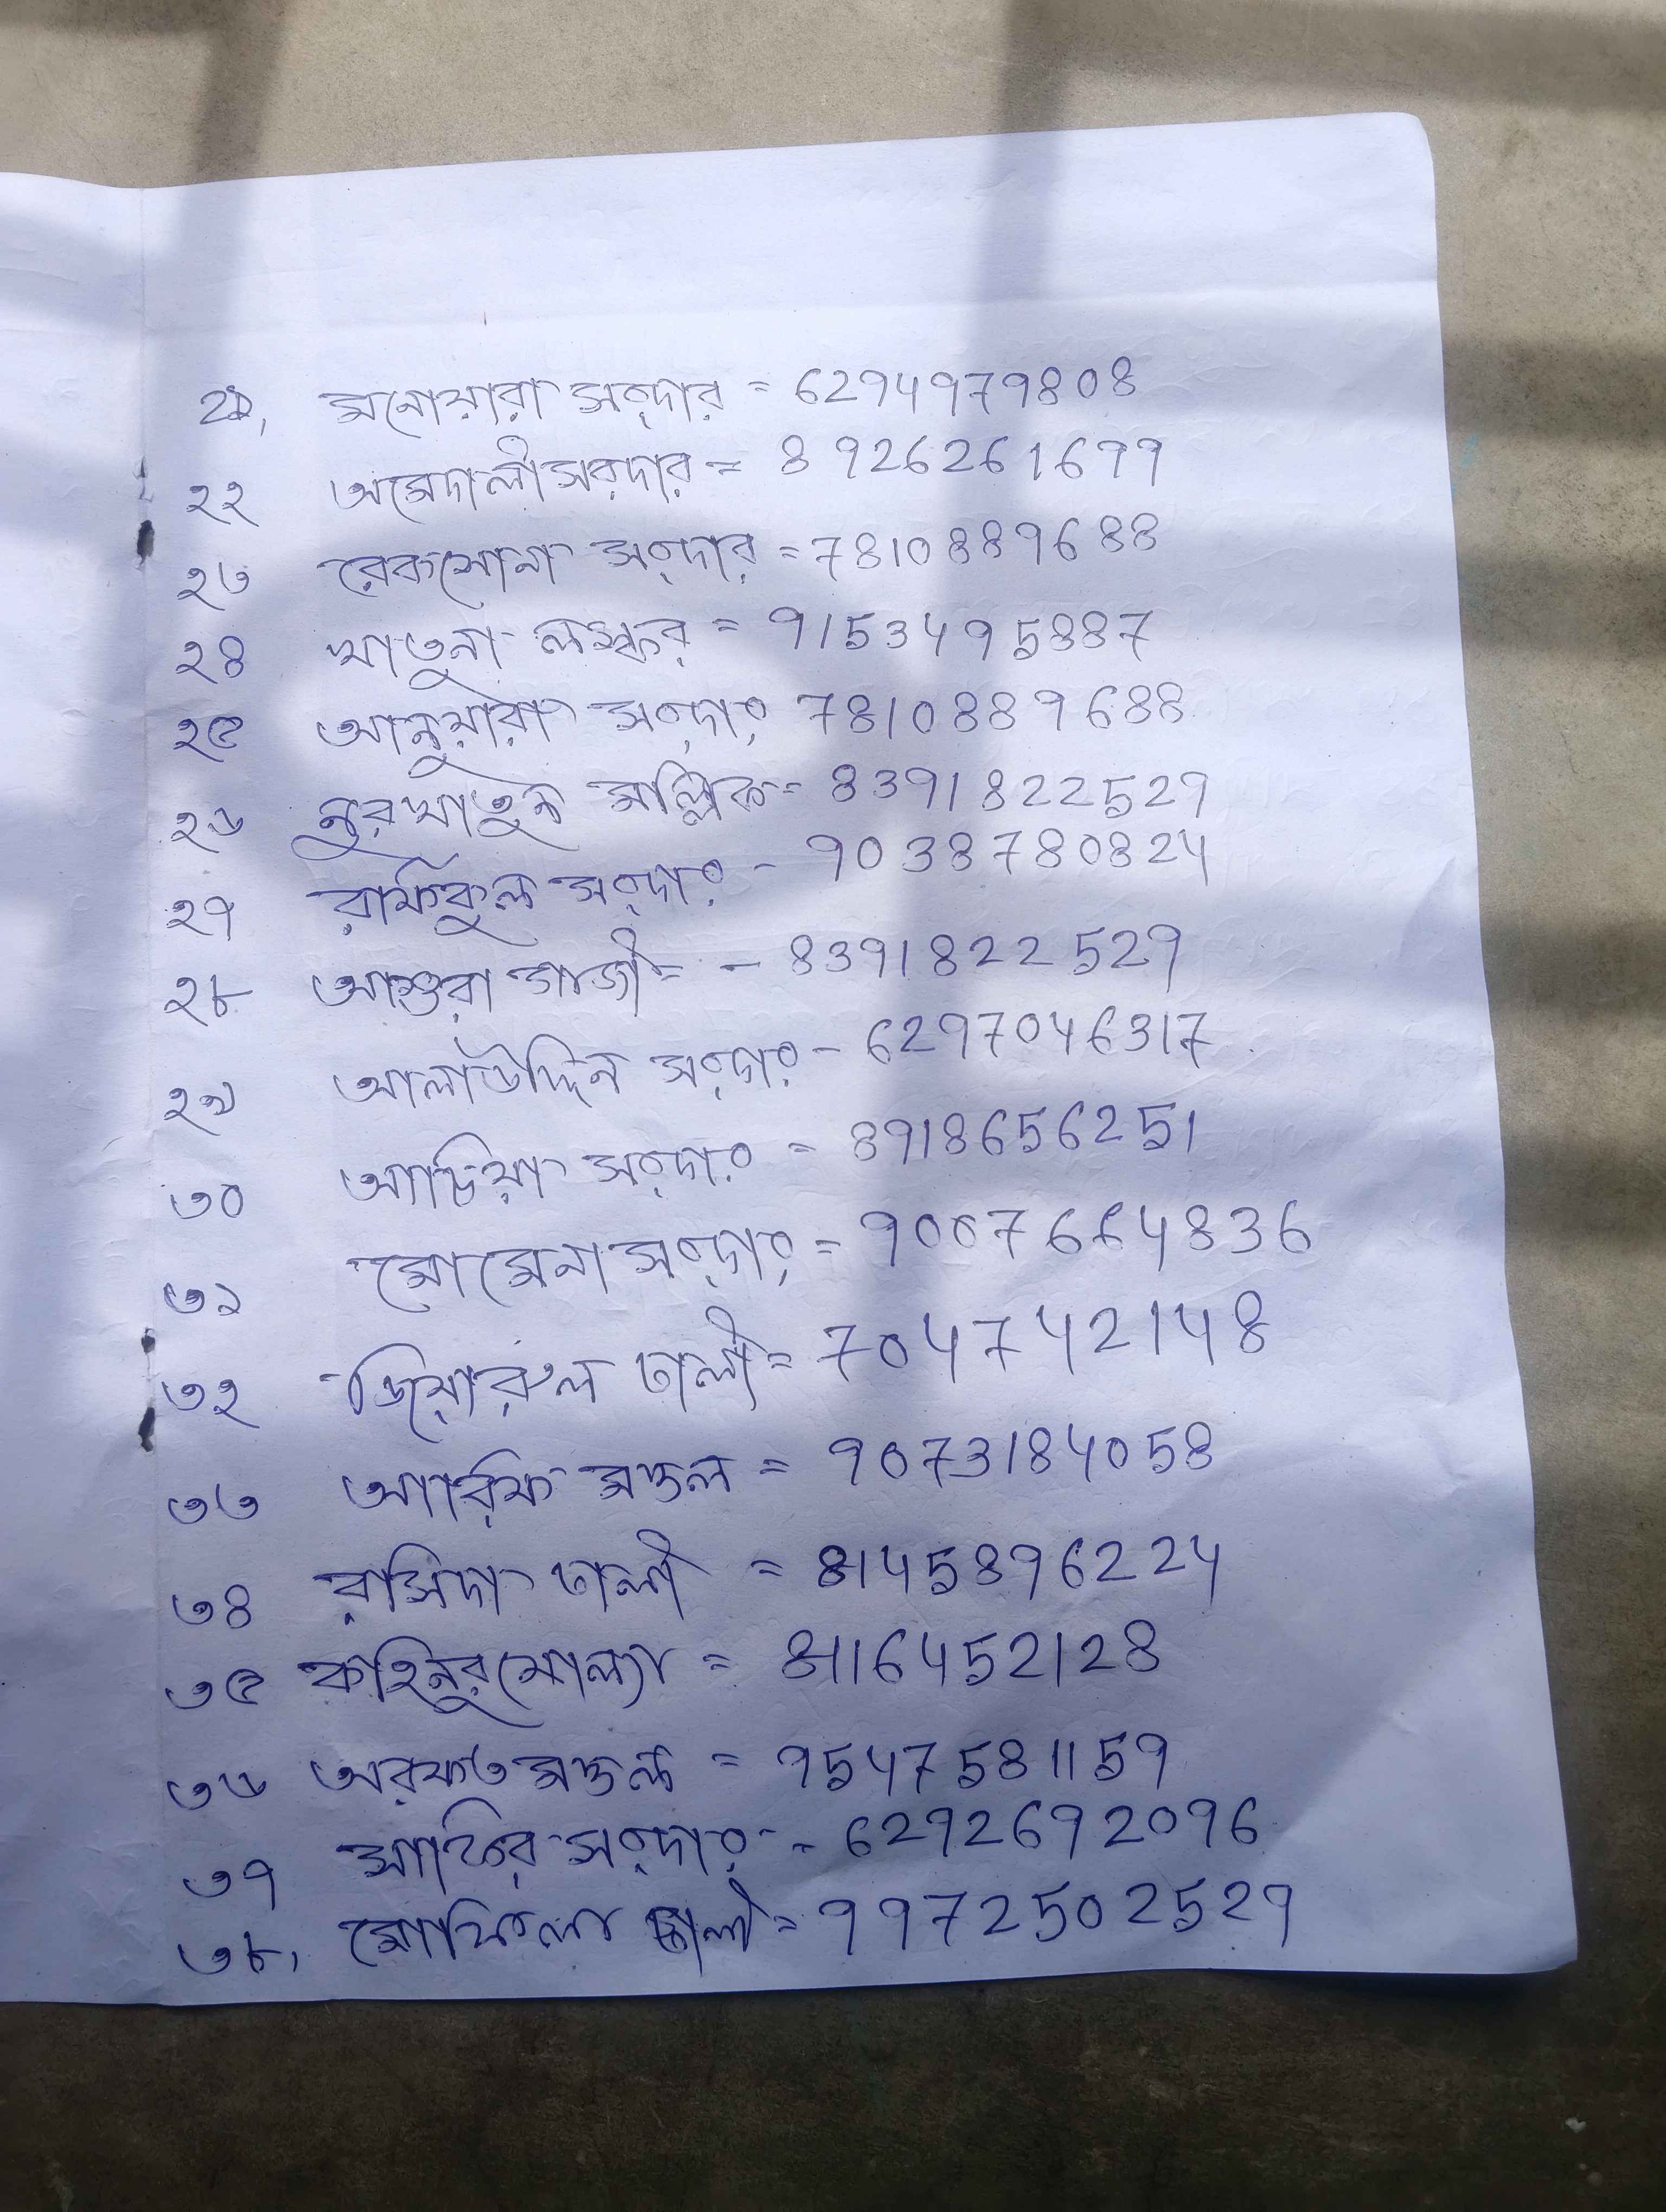 ২১, মনোয়ারা সরদার = 6294979808
২২ অমেদালী সরদার = 8926261699
২৩ রেকসোনা সরদার = 7810889688
২৪ খাতুনা লস্কর = 9153495887
২৫ আনুয়ারা সরদার 7810889688
২৬ নুরখাতুন মল্লিক = 8391822529
২৭ রফিকুল সরদার - 9038780824
২৮ আশুরা গাজী = - 8391822529
২৯ আলাউদ্দিন সরদার - 6297046317
৩০ সরদার = 8918656251
৩১ মোমেনা সরদার = 9007664836
৩২ জিয়ারুল ঢালী = 7047742148
৩৩ আরিফ মন্ডল = 9073184058
৩৪ রসিদা ঢালী = 8145896224
৩৫ কহিনুর মোল্যা = 8116452128
৩৬ অরফত মন্ডল = 9547581159
৩৭ সরদার - 6292692096
৩৮, মোফিলা ঢালী = 9972502529